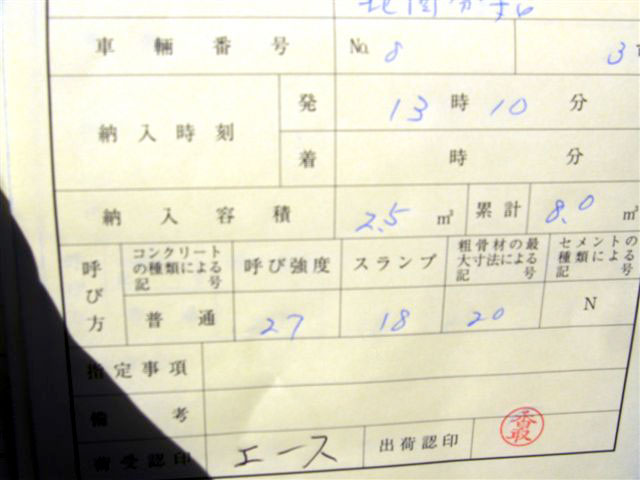 車輛番号 No. 8 3
納入時刻 発 13時10分
着 時 分
納入容積 2.5 m³ 累計 8.0 m³
呼び方
コンクリート
の種類による
記号
呼び強度
スランプ
粗骨材の最
大寸法による
記号
セメントの
種類による
記号
普通 27 18 20 N
指定事項
備考
荷受認印 エース 出荷認印 香取